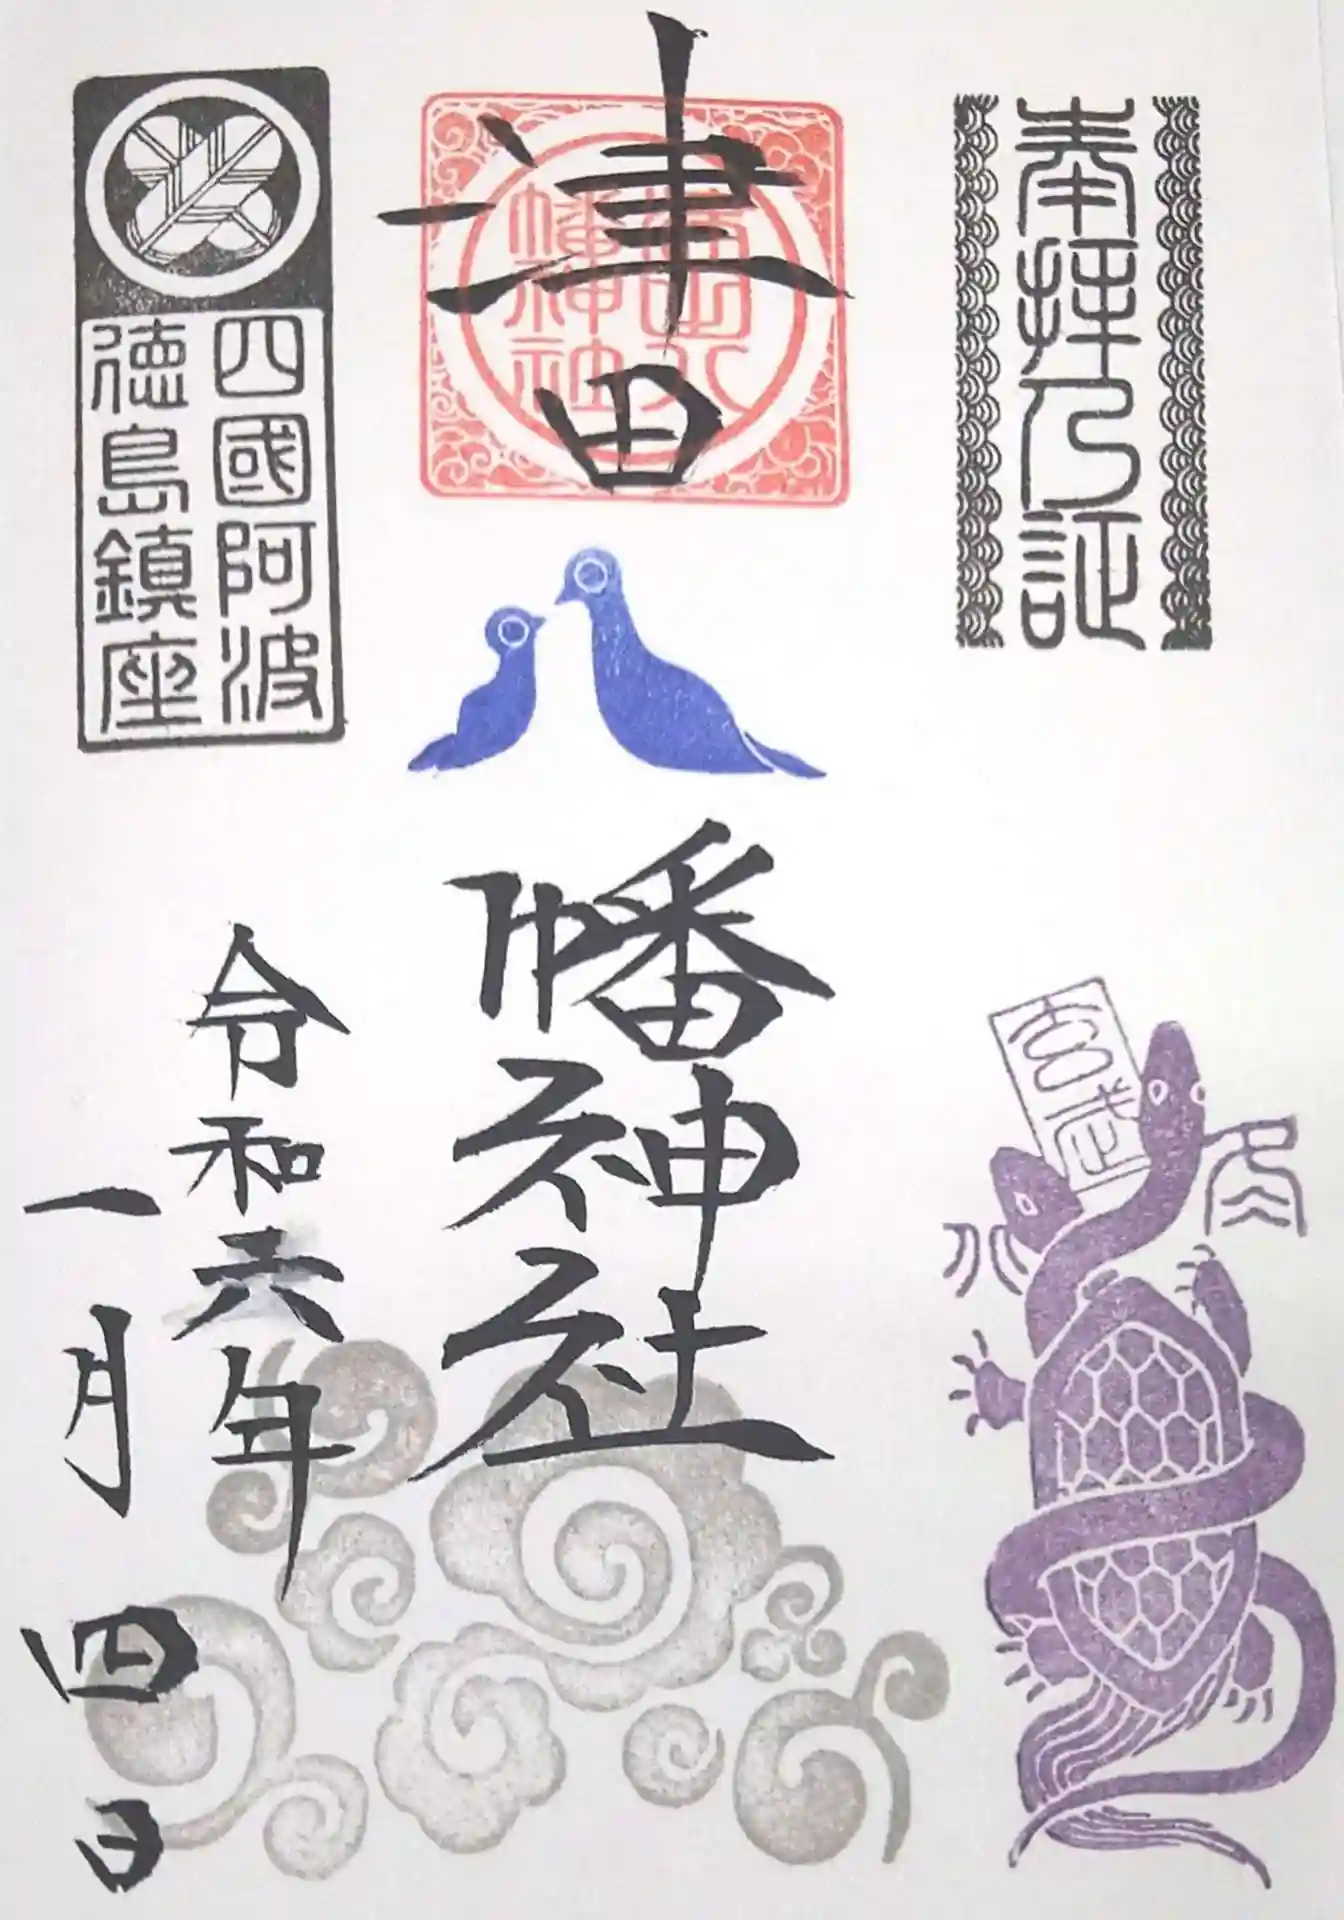 奉拝之証
津田
八幡神社
津田八
幡神社
令和六年
一月四日
四國阿波
徳島鎮座
玄武
水